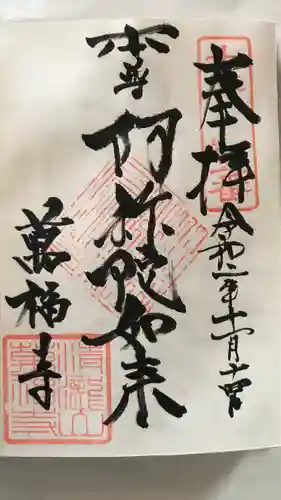 奉拝
令和二年十一月十四日
本尊
阿弥陀如来
萬福寺